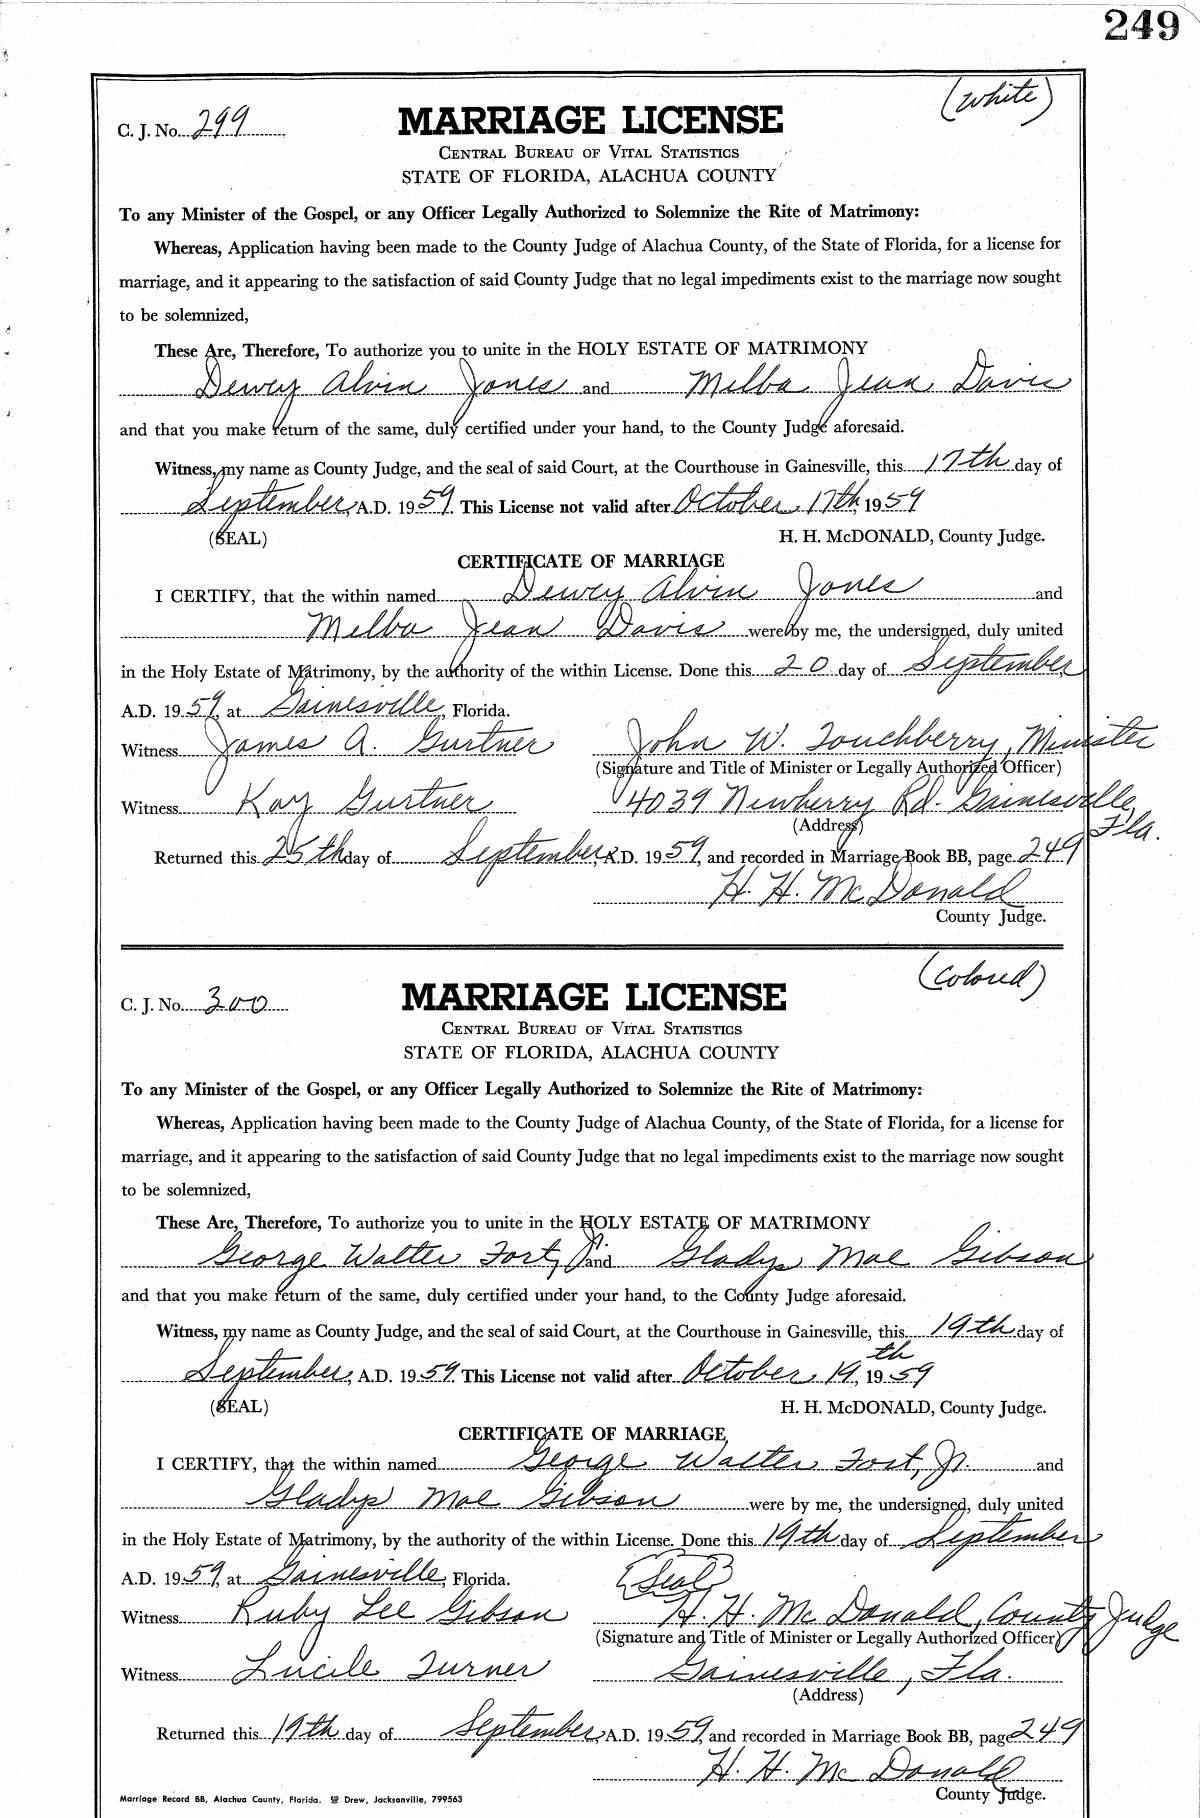 249
(White)
C. J. No. 299
MARRIAGE LICENSE
CENTRAL BUREAU OF VITAL STATISTICS
STATE OF FLORIDA, ALACHUA COUNTY
To any Minister of the Gospel, or any Officer Legally Authorized to Solemnize the Rite of Matrimony:
Whereas, Application having been made to the County Judge of Alachua County, of the State of Florida, for a license for
marriage, and it appearing to the satisfaction of said County Judge that no legal impediments exist to the marriage now sought
to be solemnized,
These Are, Therefore, To authorize you to unite in the HOLY ESTATE OF MATRIMONY
Dewey Alvin Jones and Melba Jean Davis
and that you make return of the same, duly certified under your hand, to the County Judge aforesaid.
Witness, my name as County Judge, and the seal of said Court, at the Courthouse in Gainesville, this 17th day of
September, A.D. 1959. This License not valid after October 17th, 1959
(SEAL) H. H. McDONALD, County Judge.
CERTIFICATE OF MARRIAGE
I CERTIFY, that the within named Dewey Alvin Jones and
Melba Jean Davis were by me, the undersigned, duly united
in the Holy Estate of Matrimony, by the authority of the within License. Done this 20 day of September,
A.D. 1959, at Gainesville, Florida.
Witness James A. Gurtner John W. Touchberry, Minister
(Signature and Title of Minister or Legally Authorized Officer)
Witness Kay Gurtner 4039 Newberry Rd. Gainesville,
Fla.
(Address)
Returned this 25th day of September, A.D. 1959, and recorded in Marriage Book BB, page 249
H. H. McDonald
County Judge.
(Colored)
C. J. No. 300
MARRIAGE LICENSE
CENTRAL BUREAU OF VITAL STATISTICS
STATE OF FLORIDA, ALACHUA COUNTY
To any Minister of the Gospel, or any Officer Legally Authorized to Solemnize the Rite of Matrimony:
Whereas, Application having been made to the County Judge of Alachua County, of the State of Florida, for a license for
marriage, and it appearing to the satisfaction of said County Judge that no legal impediments exist to the marriage now sought
to be solemnized,
These Are, Therefore, To authorize you to unite in the HOLY ESTATE OF MATRIMONY
George Walter Fort, Jr. and Gladys Mae Gibson
and that you make return of the same, duly certified under your hand, to the County Judge aforesaid.
Witness, my name as County Judge, and the seal of said Court, at the Courthouse in Gainesville, this 19th day of
September, A.D. 1959. This License not valid after October 19th, 1959
(SEAL) H. H. McDONALD, County Judge.
CERTIFICATE OF MARRIAGE
I CERTIFY, that the within named George Walter Fort, Jr. and
Gladys Mae Gibson were by me, the undersigned, duly united
in the Holy Estate of Matrimony, by the authority of the within License. Done this 19th day of September
A.D. 1959, at Gainesville, Florida. (Seal)
Witness Ruby Lee Gibson H. H. McDonald, County Judge
(Signature and Title of Minister or Legally Authorized Officer)
Witness Lucile Turner Gainesville, Fla.
(Address)
Returned this 19th day of September, A.D. 1959, and recorded in Marriage Book BB, page 249
H. H. McDonald
County Judge.
Marriage Record BB, Alachua County, Florida. Drew, Jacksonville, 799563